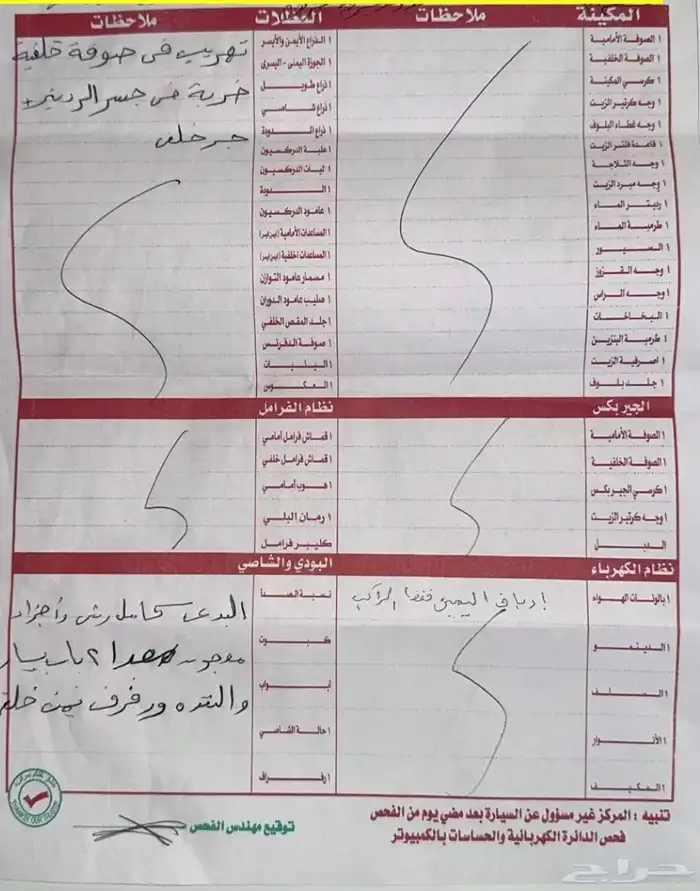 المكينة
ملاحظات
١ الصوفة الأمامية
١ الصوفة الخلفية
١ كرسي المكينة
١ وجه كرتير الزيت
١ وجه غطاء البلوف
١ قاعدة فلتر الزيت
١ وجه الثلاجة
١ وجه مبرد الزيت
١ رديتر الماء
١ طرمبة الماء
١ السيور
١ وجه القزوز
١ وجه الراس
١ البخاخات
١ طرمبة البنزين
١ اصرفية الزيت
١ جلد بلوف
العضلات
ملاحظات
١ الذراع الأيمن والأيسر
١ الجوزة اليمنى - اليسرى
١ ذراع طويل
١ ذراع شاصي
١ ذراع الدودة
١ علبة الدركسيون
١ ليات الدركسيون
١ الدودة
١ عامود الدركسيون
١ المساعدات الأمامية (يبراير)
١ المساعدات الخلفية (يبراير)
١ مسمار عامود التوازن
١ صليب عامود الدوران
١ جلد المقص الخلفي
١ صوفة الدفرنس
١ البليات
١ العكوس
تهريب في صوفة خلفية
ضربة في جسر الرديتر +
جر خلف
الجير بكس
١ الصوفة الأمامية
١ الصوفة الخلفية
١ كرسي الجير بكس
١ وجه كرتير الزيت
الدبل
نظام الفرامل
١ قماش فرامل أمامي
١ قماش فرامل خلفي
١ هوب أمامي
١ رمان البلي
كليبر فرامل
نظام الكهرباء
١ بالونات الهواء
١ الدينمو
١ السلف
١ الأنوار
١ المكيف
ارباق اليمين فقط الراكب
البودي والشاصي
نسبة الصدأ
كبوت
أبواب
١ حالة الشاصي
١ رفراف
البدي كامل رش وأجزاء
معجون عدا ٢ باب يسار
والتنده ورفرف يمين خلف
تنبيه : المركز غير مسؤول عن السيارة بعد مضي يوم من الفحص
فحص الدائرة الكهربائية والحساسات بالكمبيوتر
توقيع مهندس الفحص
حراج